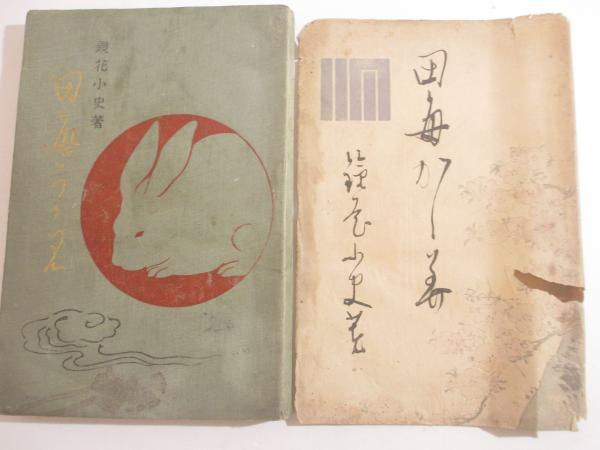 鏡花小史著
田毎かゝ見
田毎かゝ美
鏡花小史著